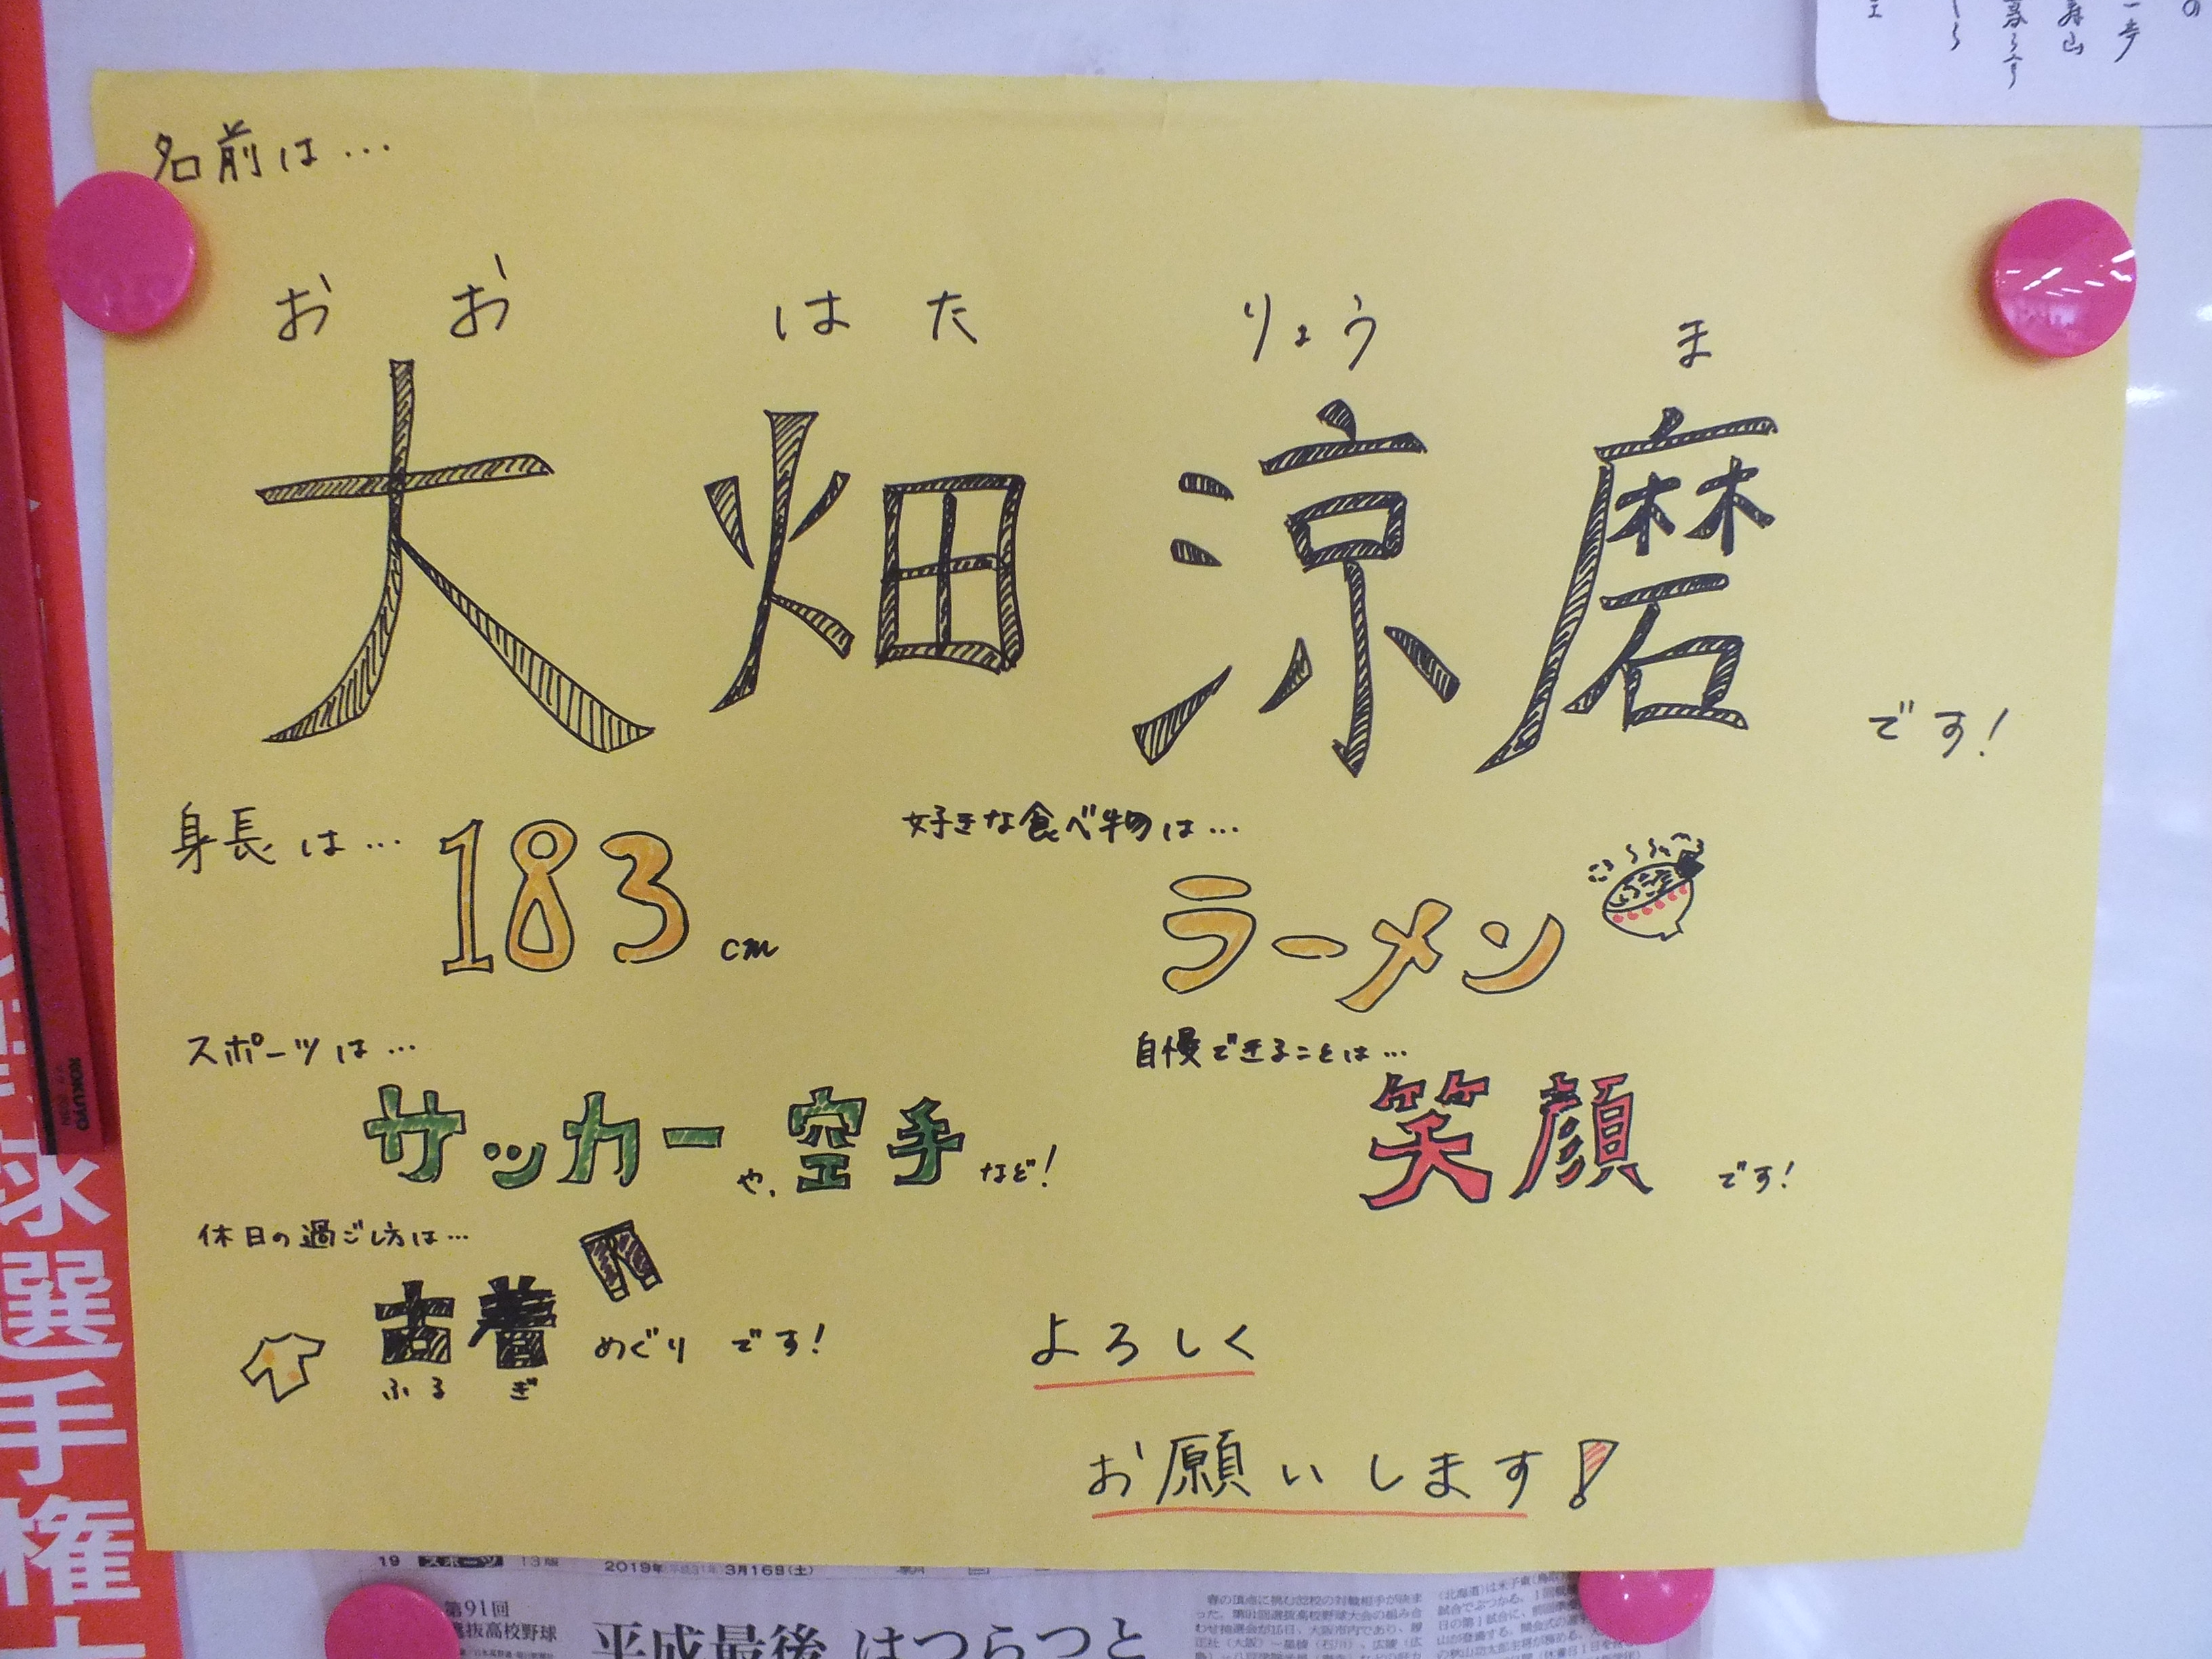 名前は…
おお はた りょう ま
大畑涼磨 です!
身長は… 183cm
好きな食べ物は…
ラーメン
スポーツは…
サッカーや、空手など!
自慢できることは…
笑顔です!
休日の過ごし方は…
古着めぐりです!
ふるぎ
よろしく
お願いします!
球選手権
KOKUYO
19 スポーツ 13版 2019年(平成31年)3月16日(土)
第91回
選抜高校野球
平成最後 はつらつと